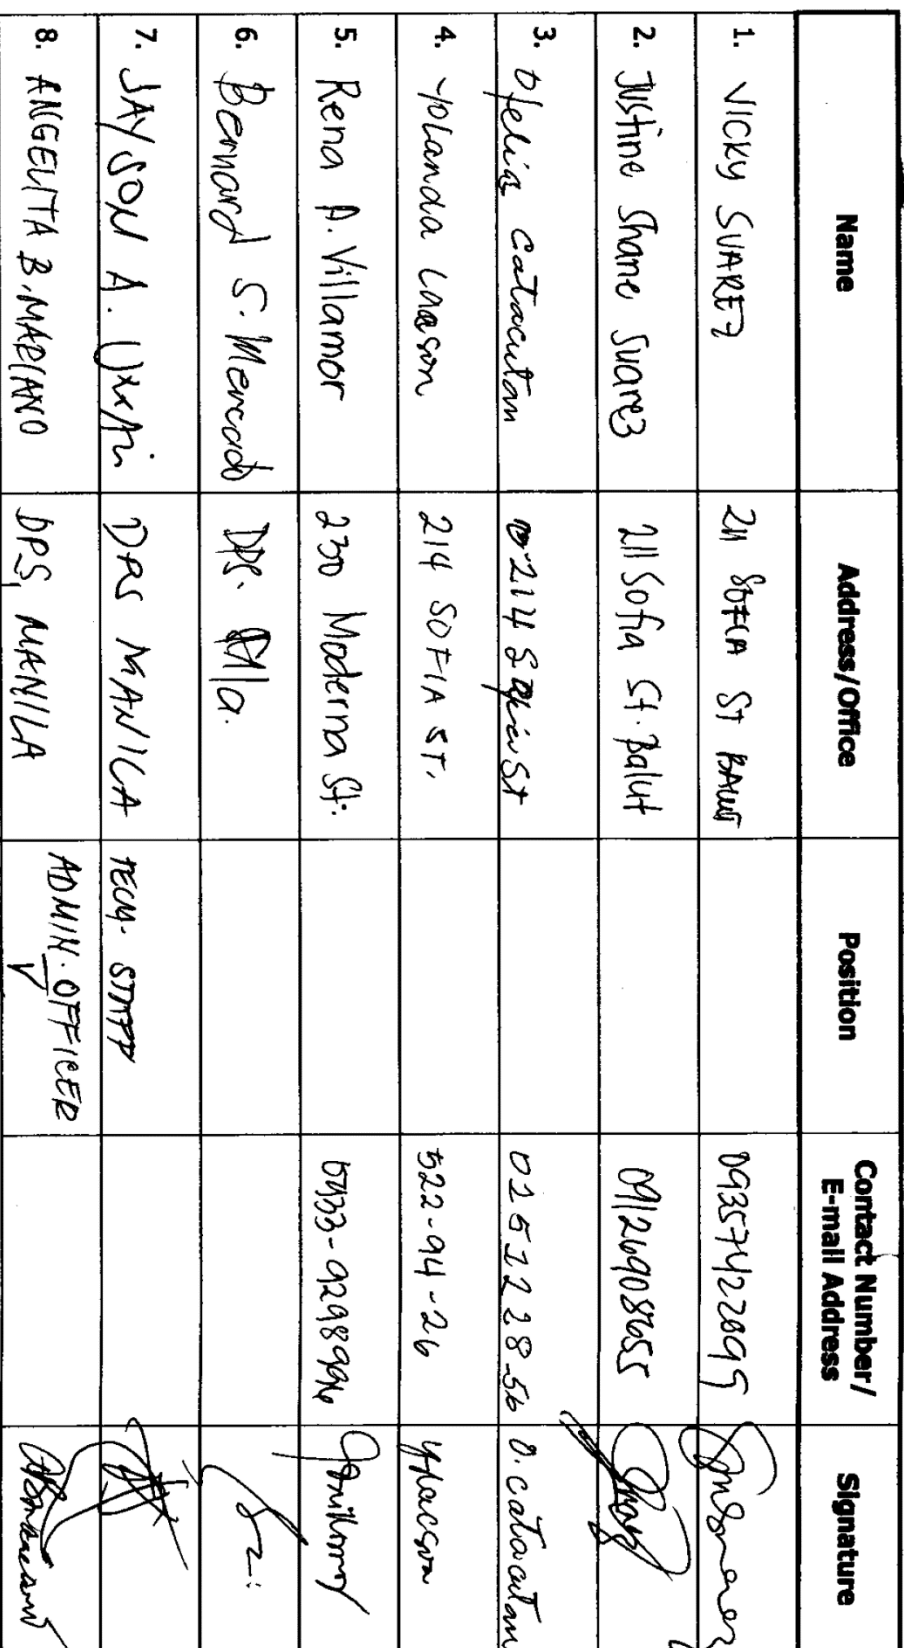 Name Address/Office Position Contact Number/ E-mail Address Signature
1. VICKY SUAREZ 211 SOFIA ST BALUT 09357422095
2. Justine Shane Suarez 211 Sofia St. Balut 09126908655
3. Ofelia Catacutan 214 Sofia St 0251228-56 O. Catacutan
4. Yolanda Lacson 214 SOFIA ST. 522-94-26 Ylacson
5. Rena A. Villamor 230 Moderna St.
6. Bernard S. Mercado DPS. Mla.
7. JAYSON A. DPS MANILA TECH. STAFF
8. ANGELITA B. MARIANO DPS, MANILA ADMIN. OFFICER V